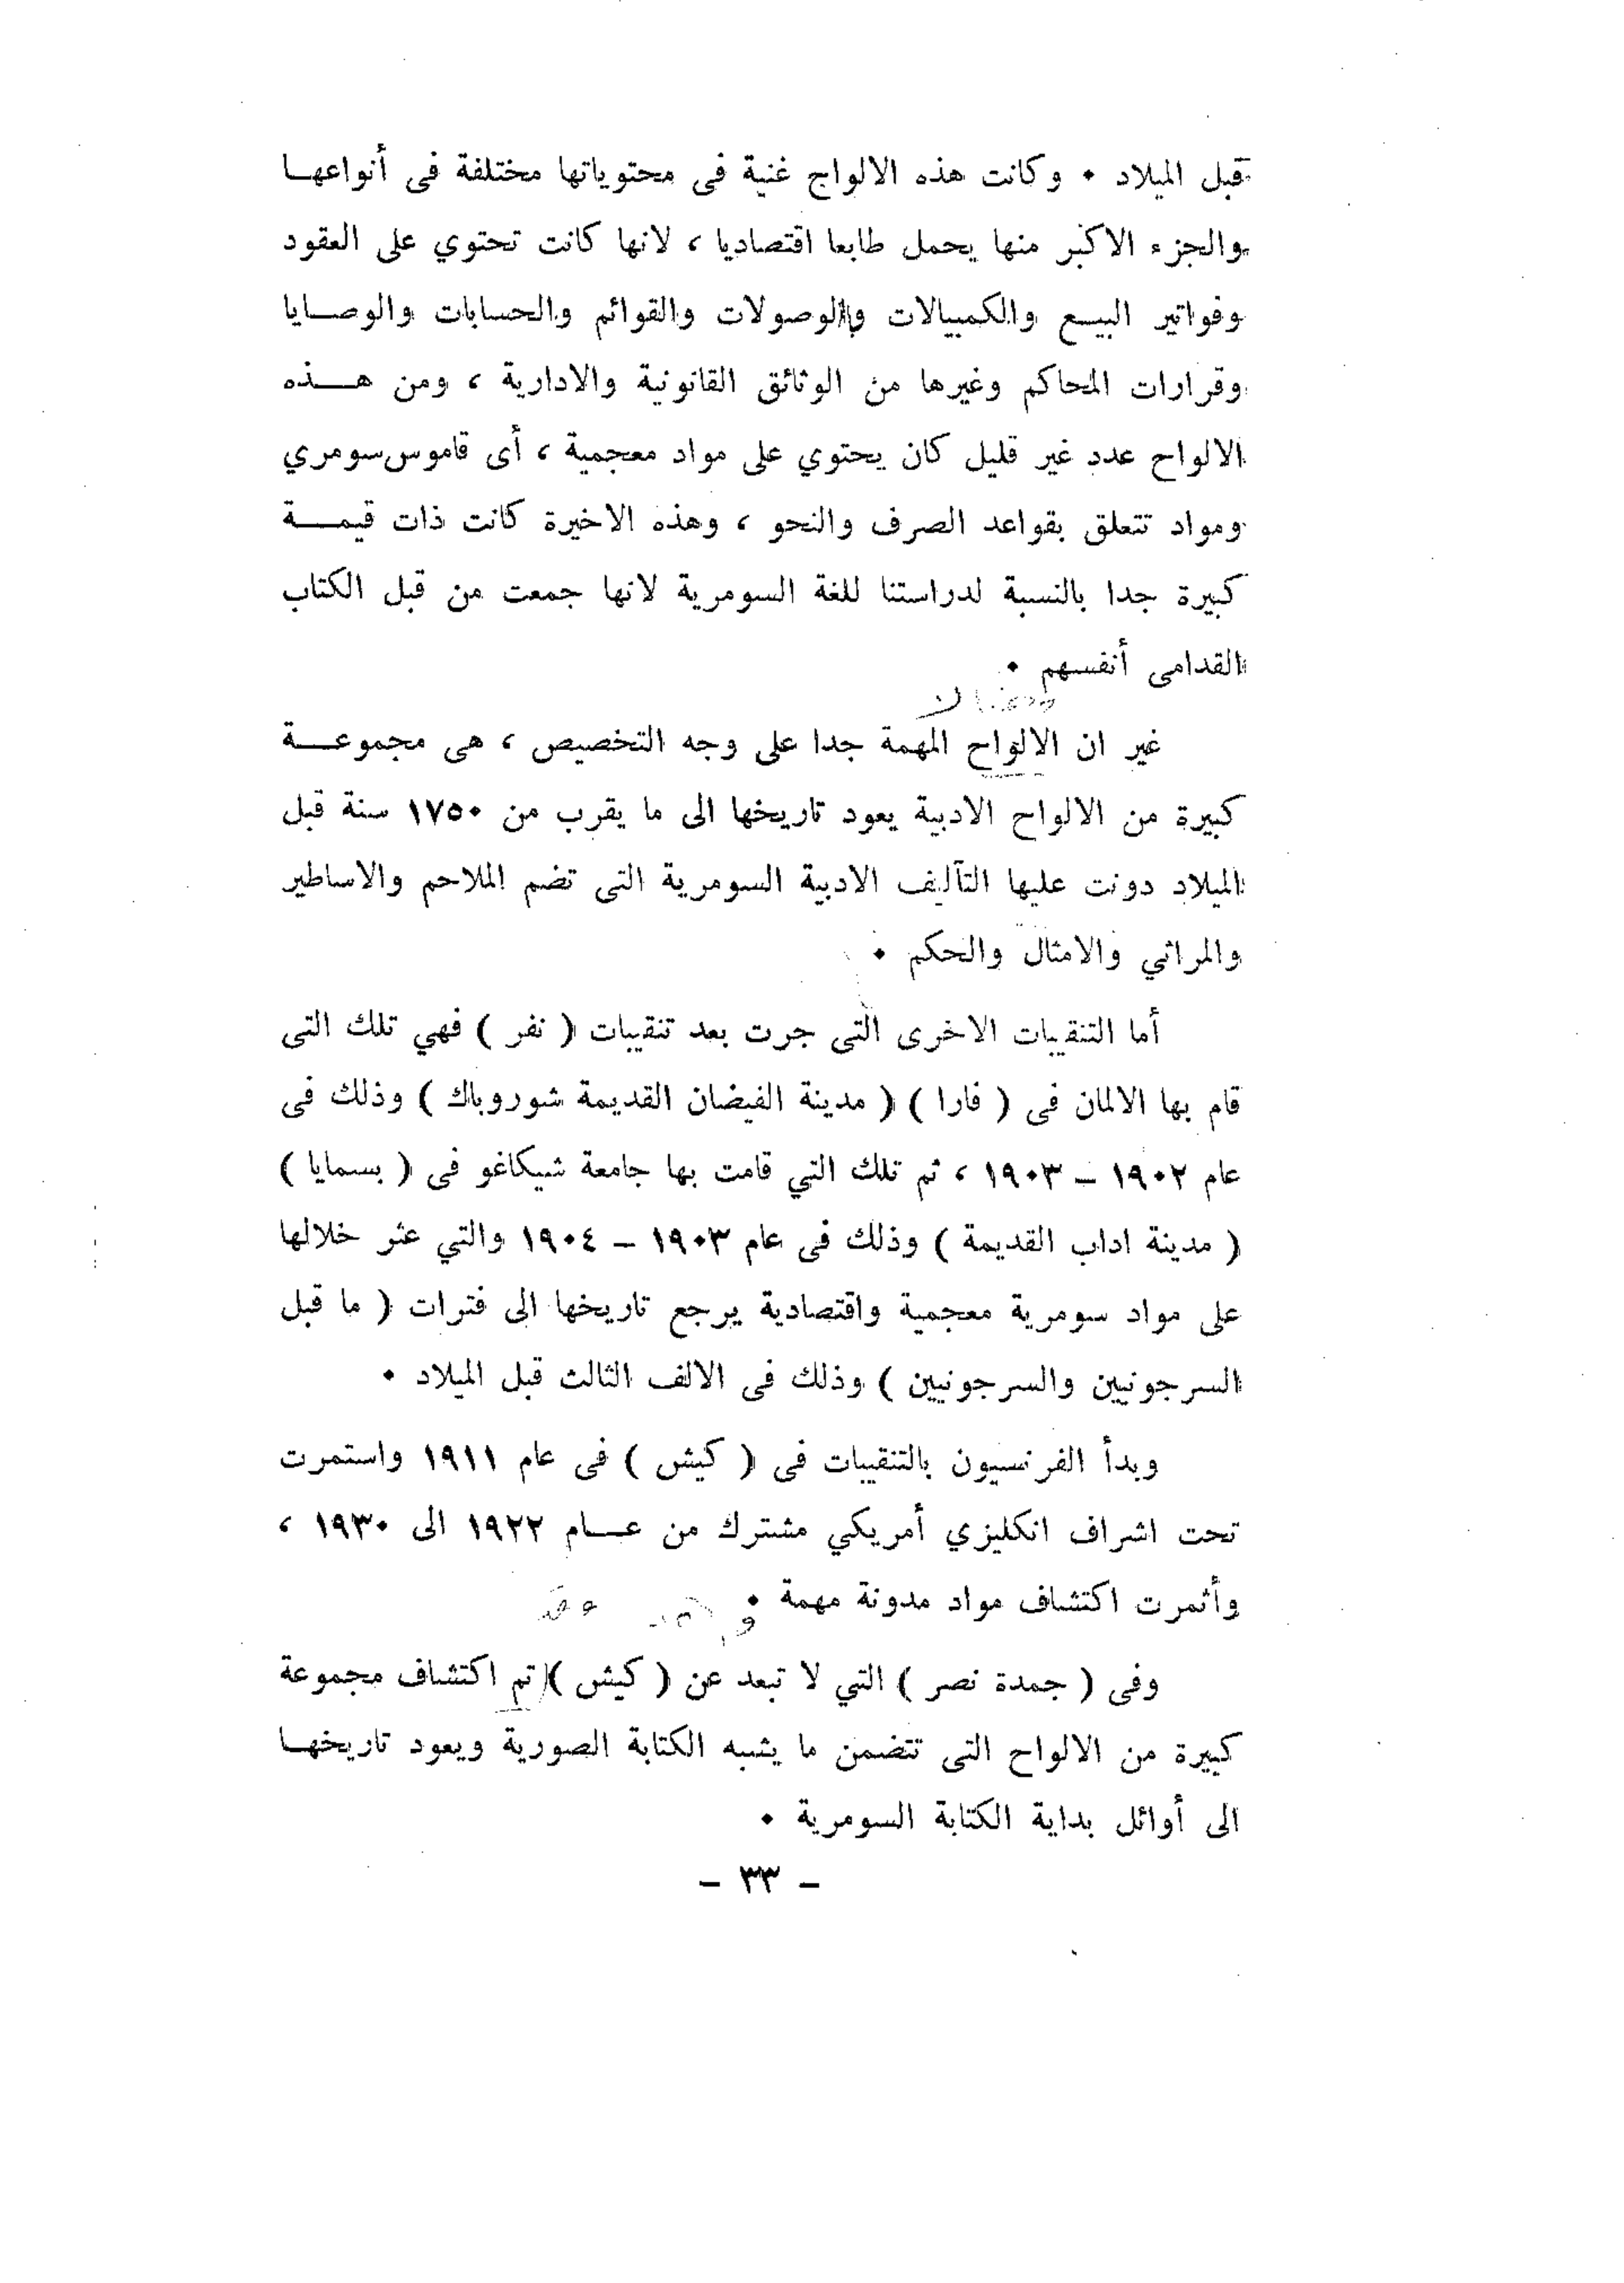 قبل الميلاد • وكانت هذه الالواح غنية فى محتوياتها مختلفة فى أنواعهـا
والجزء الاكبر منها يحمل طابعا اقتصاديا ، لانها كانت تحتوي على العقود
وفواتير البيـع والكمبيالات والوصولات والقوائم والحسابات والوصـايا
وقرارات المحاكم وغيرها من الوثائق القانونية والادارية ، ومن هـــذه
الالواح عدد غير قليل كان يحتوي على مواد معجمية ، أى قاموس سومري
ومواد تتعلق بقواعد الصرف والنحو ، وهذه الاخيرة كانت ذات قيمـــة
كبيرة جدا بالنسبة لدراستنا للغة السومرية لانها جمعت من قبل الكتاب
القدامى أنفسهم •
غير ان الالواح المهمة جدا على وجه التخصيص ، هى مجموعـــة
كبيرة من الالواح الادبية يعود تاريخها الى ما يقرب من ١٧٥٠ سنة قبل
الميلاد دونت عليها التآليف الادبية السومرية التى تضم الملاحم والاساطير
والمراثي والامثال والحكم •
أما التنقيبات الاخرى التى جرت بعد تنقيبات ( نفر ) فهي تلك التى
قام بها الالمان فى ( فارا ) ( مدينة الفيضان القديمة شوروباك ) وذلك فى
عام ١٩٠٢ – ١٩٠٣ ، ثم تلك التي قامت بها جامعة شيكاغو فى ( بسمايا )
( مدينة اداب القديمة ) وذلك فى عام ١٩٠٣ – ١٩٠٤ والتي عثر خلالها
على مواد سومرية معجمية واقتصادية يرجع تاريخها الى فترات ( ما قبل
السرجونيين والسرجونيين ) وذلك فى الالف الثالث قبل الميلاد •
وبدأ الفرنسيون بالتنقيبات فى ( كيش ) فى عام ١٩١١ واستمرت
تحت اشراف انكليزي أمريكي مشترك من عـــام ١٩٢٢ الى ١٩٣٠ ،
وأثمرت اكتشاف مواد مدونة مهمة •
وفى ( جمدة نصر ) التي لا تبعد عن ( كيش ) تم اكتشاف مجموعة
كبيرة من الالواح التى تتضمن ما يشبه الكتابة الصورية ويعود تاريخهـا
الى أوائل بداية الكتابة السومرية •
– ٣٣ –